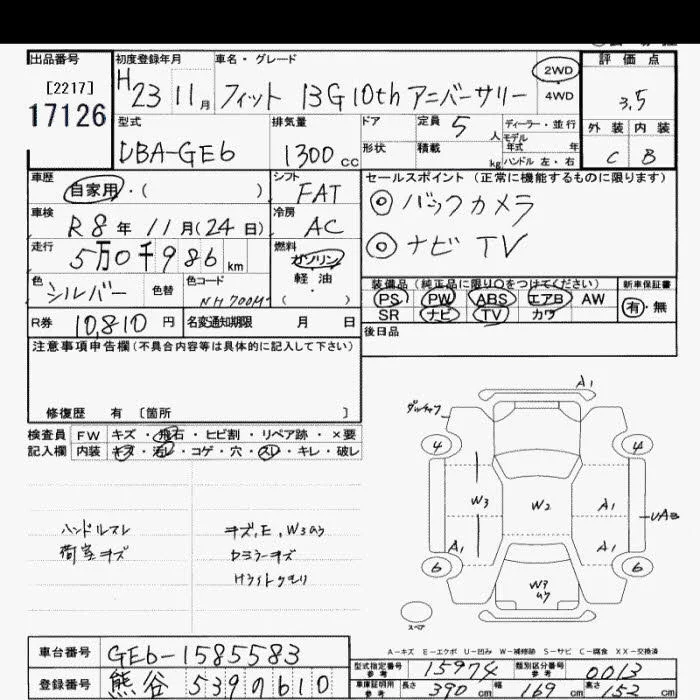 出品番号 初度登録年月 車名・グレード 評価点
[2217]
17126
H23 11月 フィット 13G10thアニバーサリー 2WD 4WD 3.5
型式 排気量 ドア 定員 5人 ディーラー・並行 外装 内装
DBA-GE6 1300cc 形状 積載 kg モデル年式 年 ハンドル 左・右 C B
車歴 自家用・( ) シフト FAT セールスポイント (正常に機能するものに限ります)
車検 R8年11月(24日) 冷房 AC ◎バックカメラ
走行 5万0千986km 燃料 ガソリン 軽油 ( ) ◎ナビ TV
色 シルバー 色替 色コード NH700M 装備品 (純正品に限り○をつけてください) 新車保証書
PS PW ABS エアB AW 有・無
SR ナビ TV カワ
R券 10,810円 名変通知期限 月 日 後日品
注意事項申告欄(不具合内容等は具体的に記入して下さい)
修復歴 有 [箇所 ]
検査員 FW キズ・飛石・ヒビ割・リペア跡・×要
記入欄 内装 キズ・汚レ・コゲ・穴・スレ・キレ・破レ
ハンドルスレ
荷室キズ
キズ,E,W3
ドアミラーキズ
Hライトクモリ
A1
4 4
W3 W2 A1
UAB
A1 A1
6 W3 6
スペア
A-キズ E-エクボ U-凹み W-補修跡 S-サビ C-腐食 XX-交換済
車台番号 GE6-1585583
登録番号 熊谷 539の610
型式指定番号 参考 15974 類別区分番号 参考 0013
車庫証明用 参考 長さ 390cm 幅 169cm 高さ 152cm